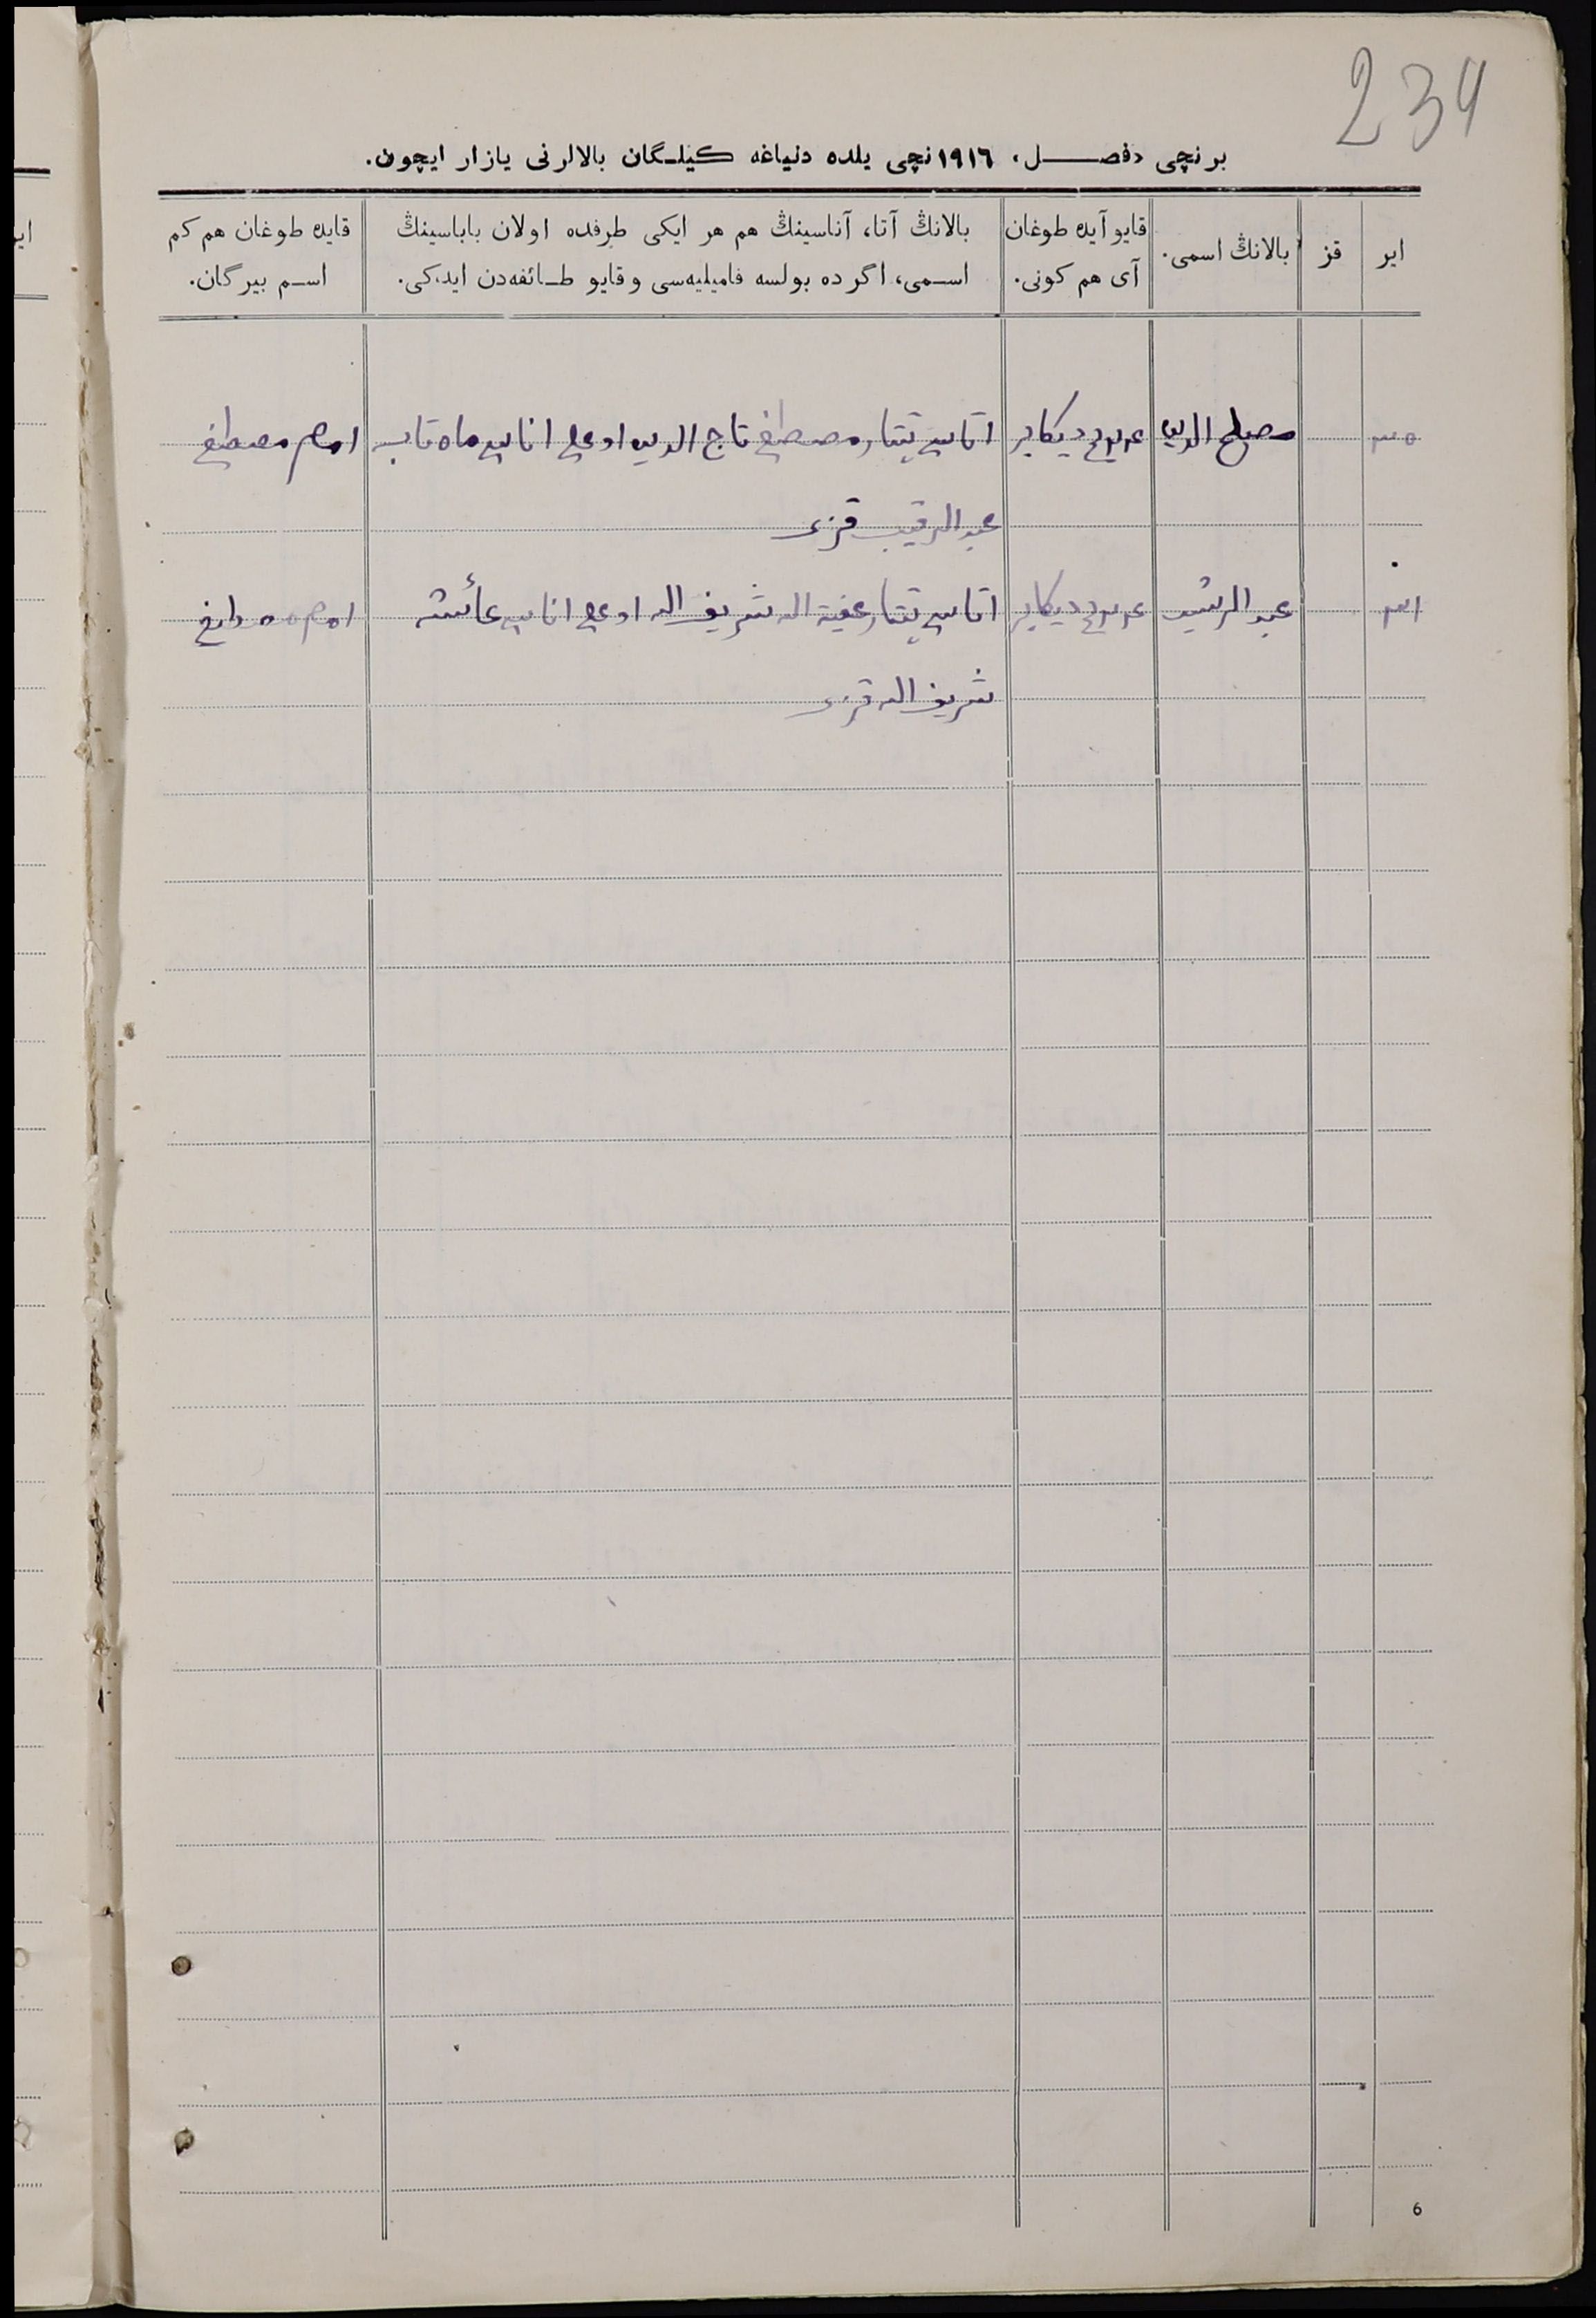 234
برنچی فصل، ١٩١٦نچی یلده دنیاغه کیلگان بالالرنی یازار ایچون.
ایر
قز
بالانڭ اسمی.
قایو آیده طوغان
آی هم کونی.
بالانڭ آتا، آناسینڭ هم هر ایکی طرفده اولان باباسینڭ
اسمی، اگر ده بولسه فامیلیه‌سی و قایو طائفه‌دن ایدکی.
قایده طوغان هم کم
اسم بیرگان.
مصلح الدین دیکابر اتاسی تپتار مصطفی تاج الدین اوغلی اناسی ماه تاب امام مصطفی
عبد الرقیب قزی
عبد الرشید دیکابر اتاسی تپتار شریف الله اوغلی اناسی عائشه امام
شریف الله قزی
6